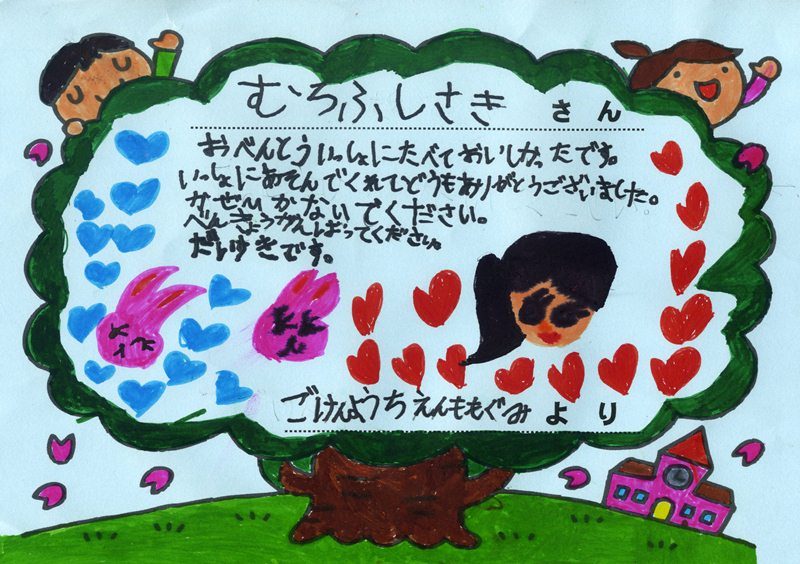 むろふしさき さん
おべんとういっしょにたべておいしかったです。
いっしょにあそんでくれてどうもありがとうございました。
かぜひかないでください。
べんきょうがんばってください。
だいすきです。
ごけんようちえんももぐみ より